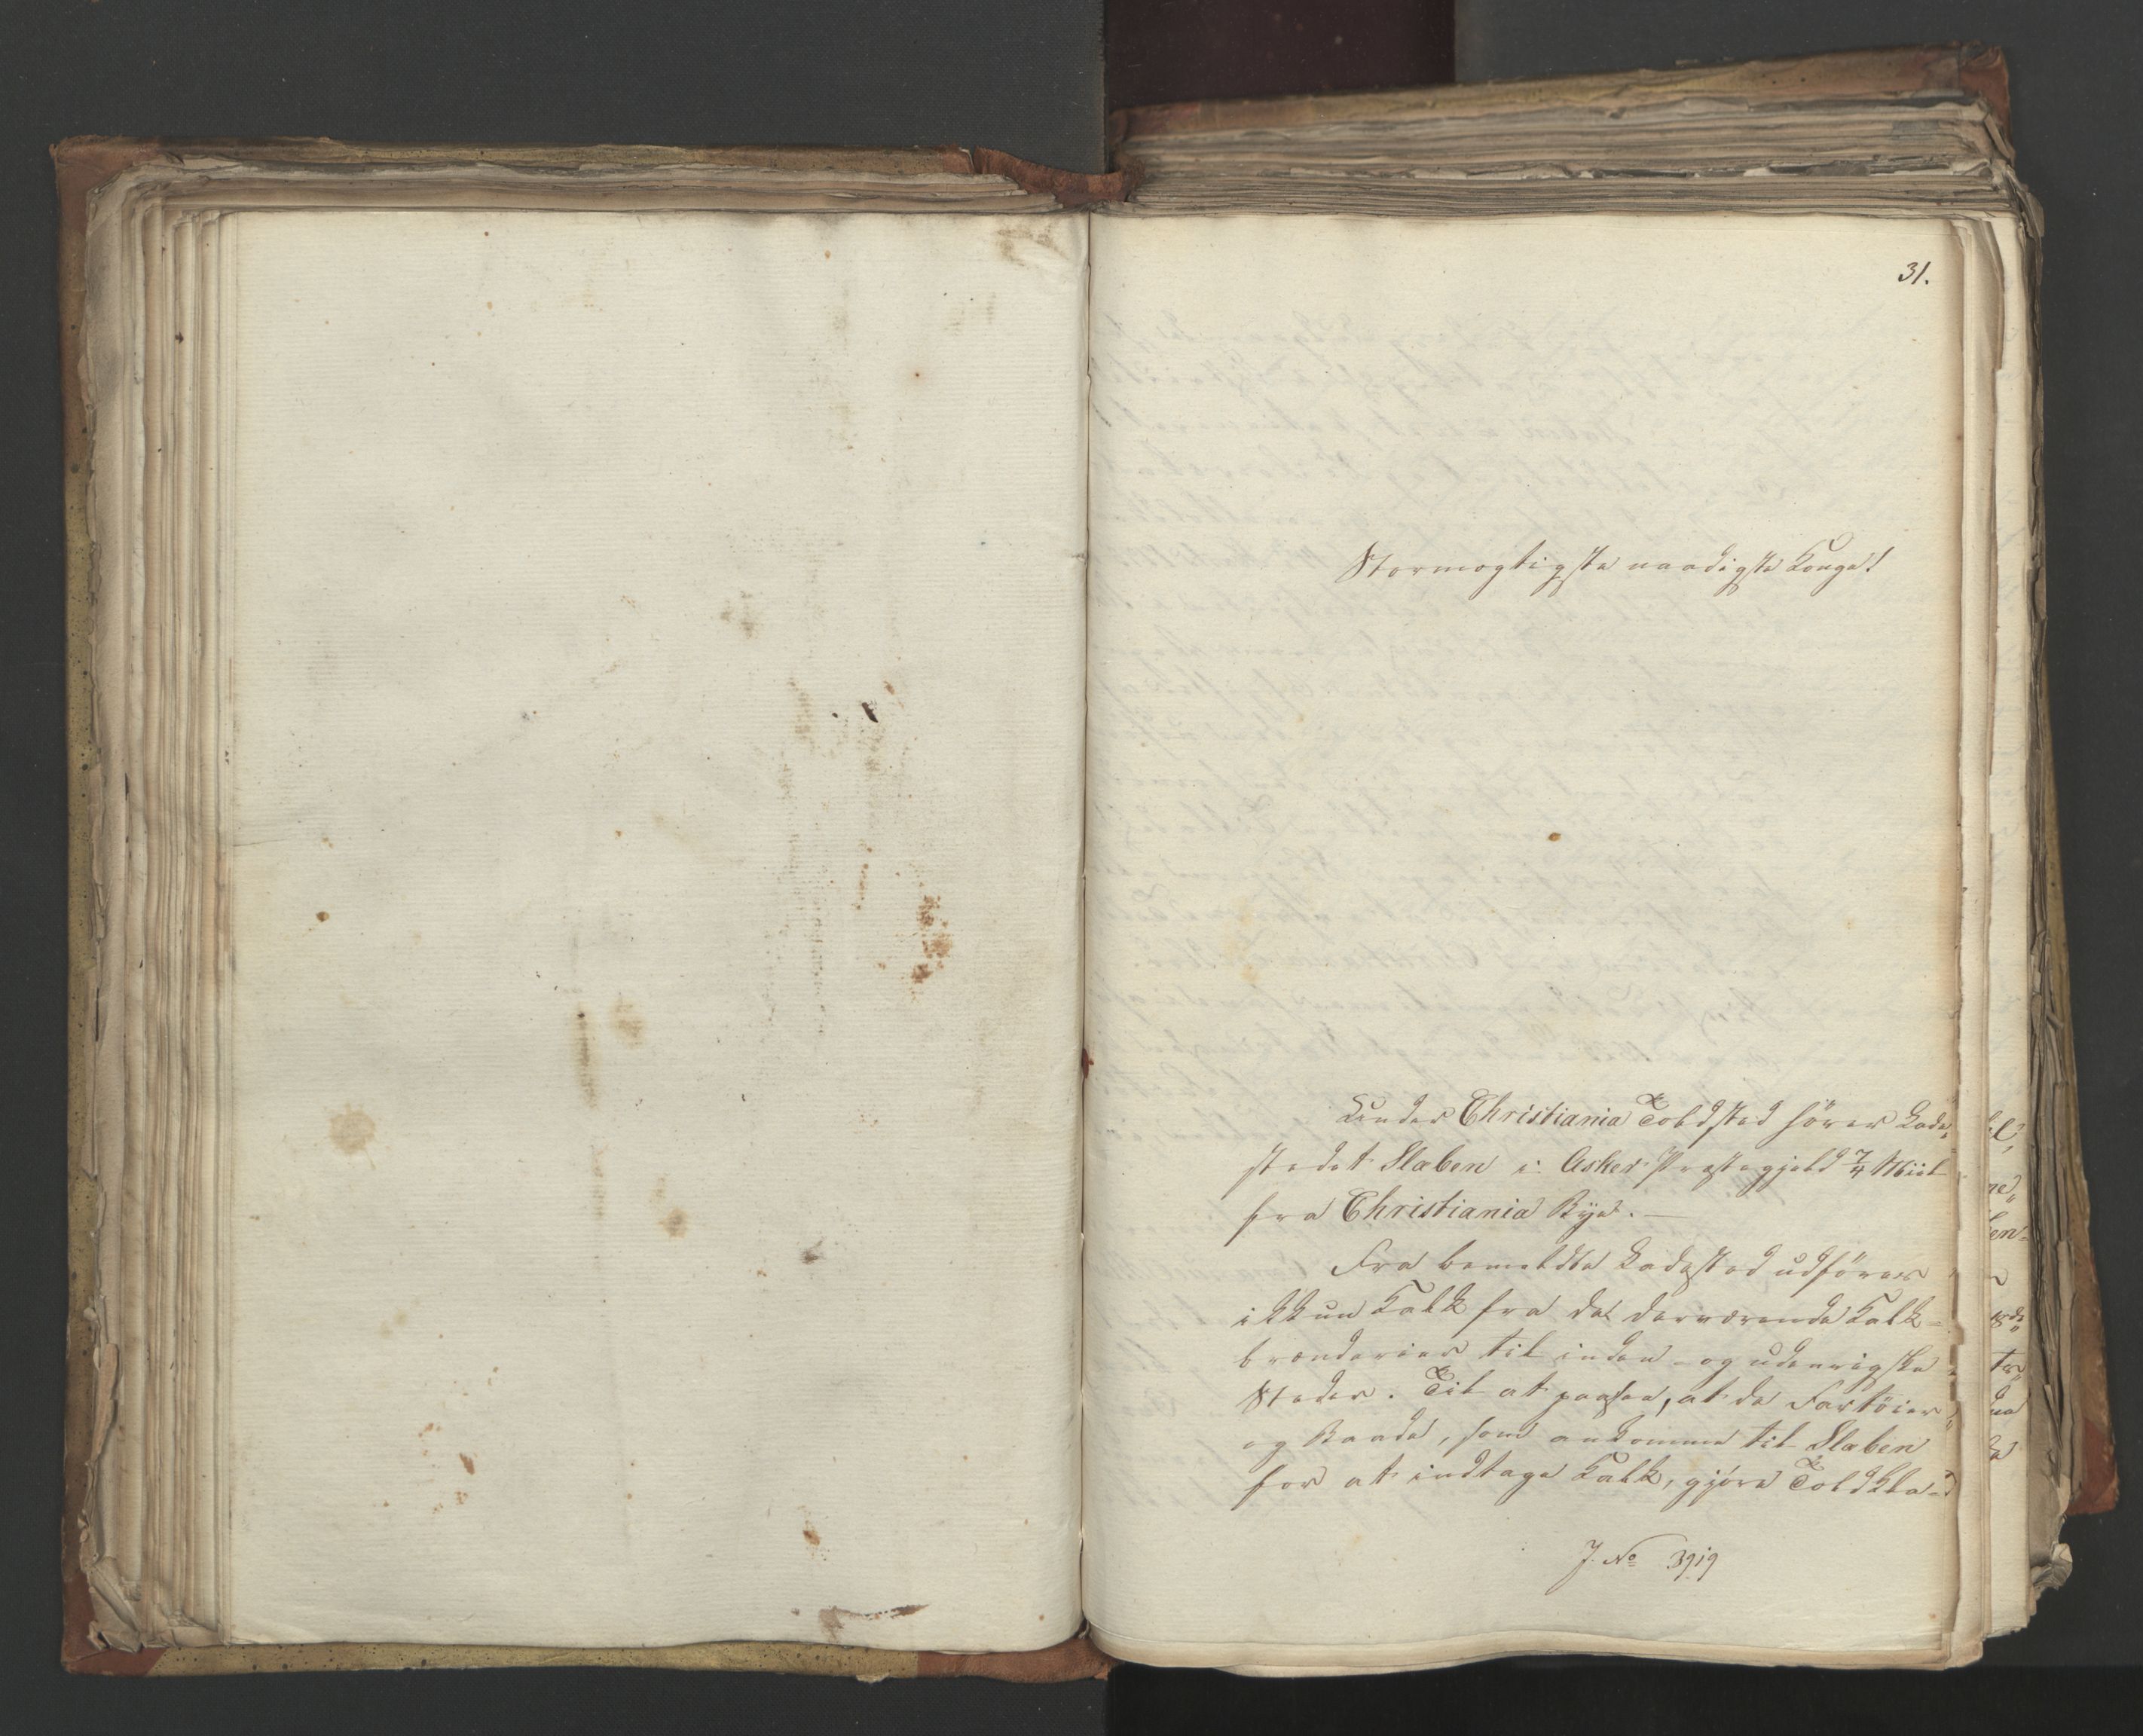 31.
Stormægtigste naadigste Konge!
Under Christiania Toldsted hører Lade-
stedet Slæben i Asker Præstegjeld 7/4 Miil
fra Christiania Bye. —
Fra bemeldte Ladested udføres
ikkun Kalk fra de derværende Kalk-
brænderier til inden- og udenrigske
Steder. Til at paasee, at de Fartöier
og Baade, som ankomme til Slæben
for at indtage Kalk, gjøre Toldkla-
J. No 3919